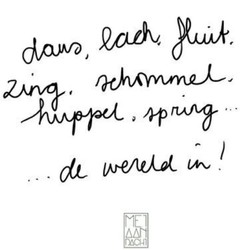 dans, lach, fluit,
zing, schommel,
huppel, spring...
... de wereld in!
MET
AAN
DACHT